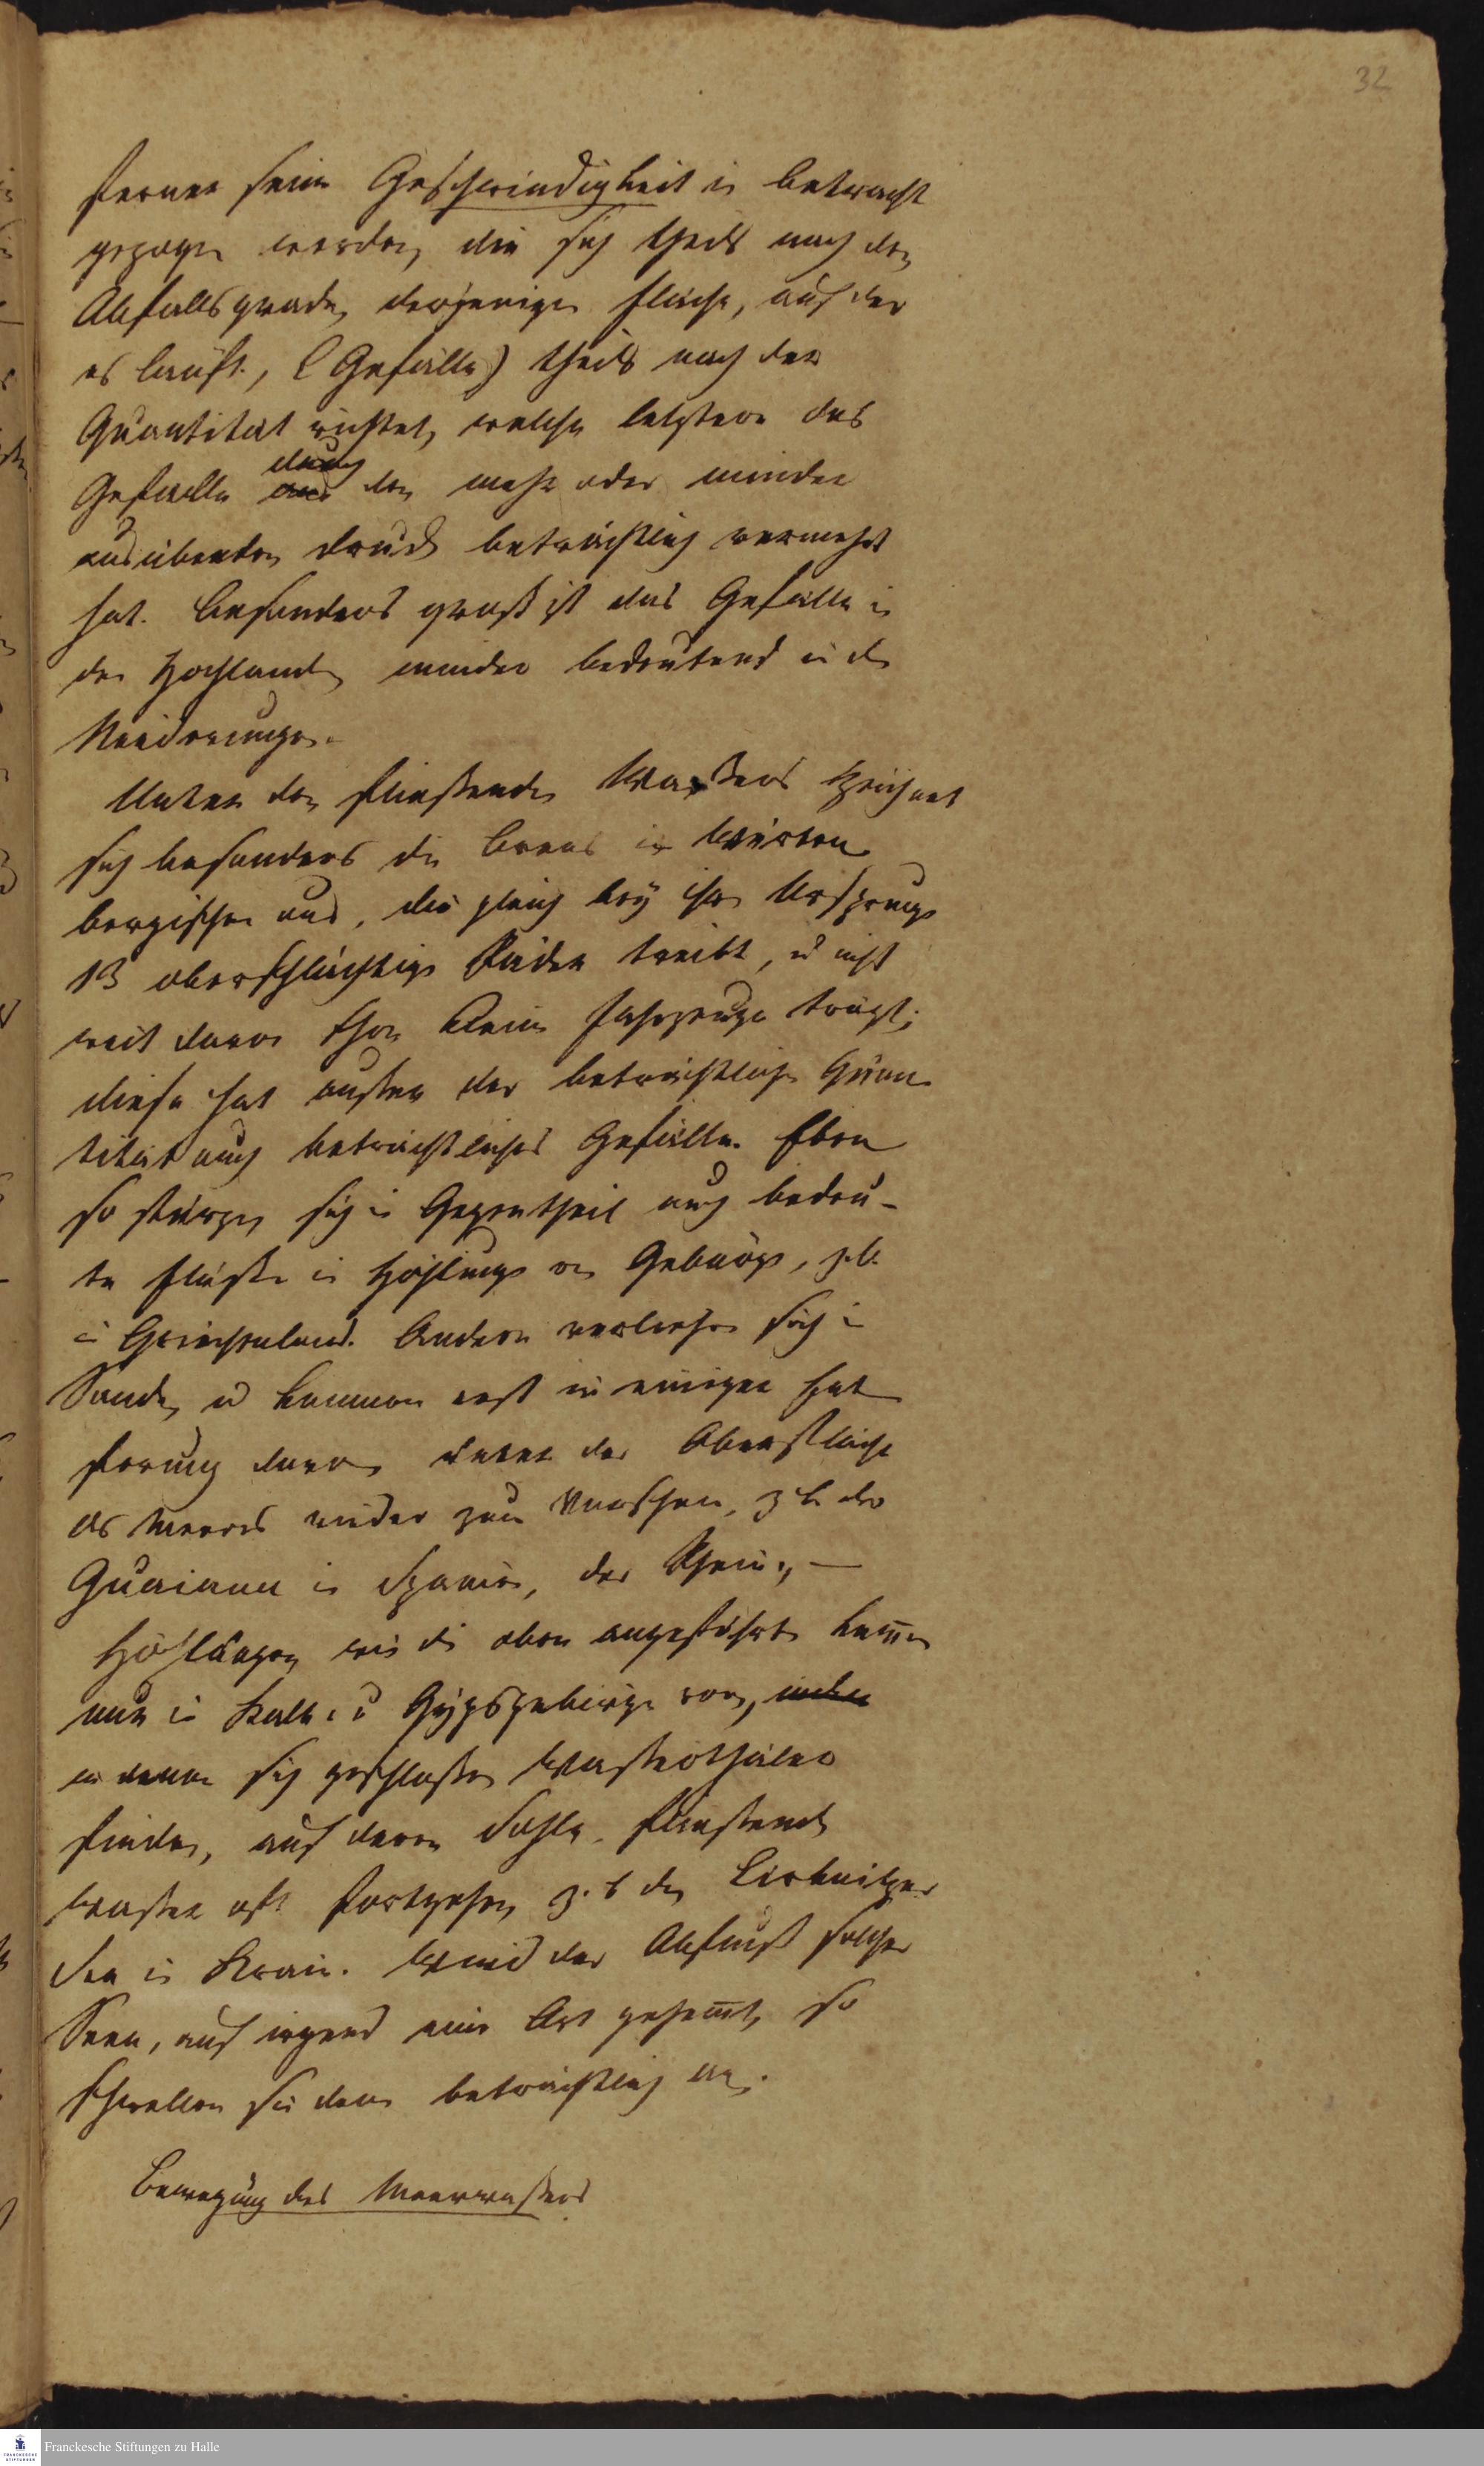 32
ferner seine Geschwindigkeit in betracht
gezogen werden, die sich theils nach dem
Abfallsgrade, derjenigen Fläche, auf der
es läuft, (Gefälle) theils nach der
Quantität richtet, welche letztere das
Gefälle durch den mehr oder minder
auszuübenden Druck beträchtlich vermehrt
hat. Besonders groß ist das Gefälle in
den Hochlanden minder bedeutend in den
Niederungen.
Unter den fließenden Wassers zeichnet
sich besonders die Brenz in Würtem
bergischen aus, die gleich bey ihrem Ursprunge
13 oberschlächtige Räder treibt, u nicht
weit davon schon kleine Fahrzeuge trägt;
diese hat außer der beträchtlichen Quan
tität auch beträchtliches Gefälle. Eben
so stürzen sich in Gegentheil auch bedeu-
te Flüße in Höhlungen von Gebürge, z.b.
in Griechenland. Andere verliehren sich in
Sande, u kommen erst in einiger Ent
fernung davon unter der Oberfläche
des Meeres wieder zum Vorschein, z b der
Guaiana in Spanien, der Rhein, —
Höhlungen wie die oben angeführten kom̄en
nur in Kalk u Gypsgebirge vor,
in denen sich geschloßene Wasserthäler
finden, auf deren Sohle fließende
Wasser oft fortgehen, z. b der Zirknitzer
See in Krain. Wird der Abfluß solcher
Seen, auf irgend eine Art gehem̄t, so
schwellen sie dann beträchtlich an.
Bewegung des Meerwassers
Franckesche Stiftungen zu Halle